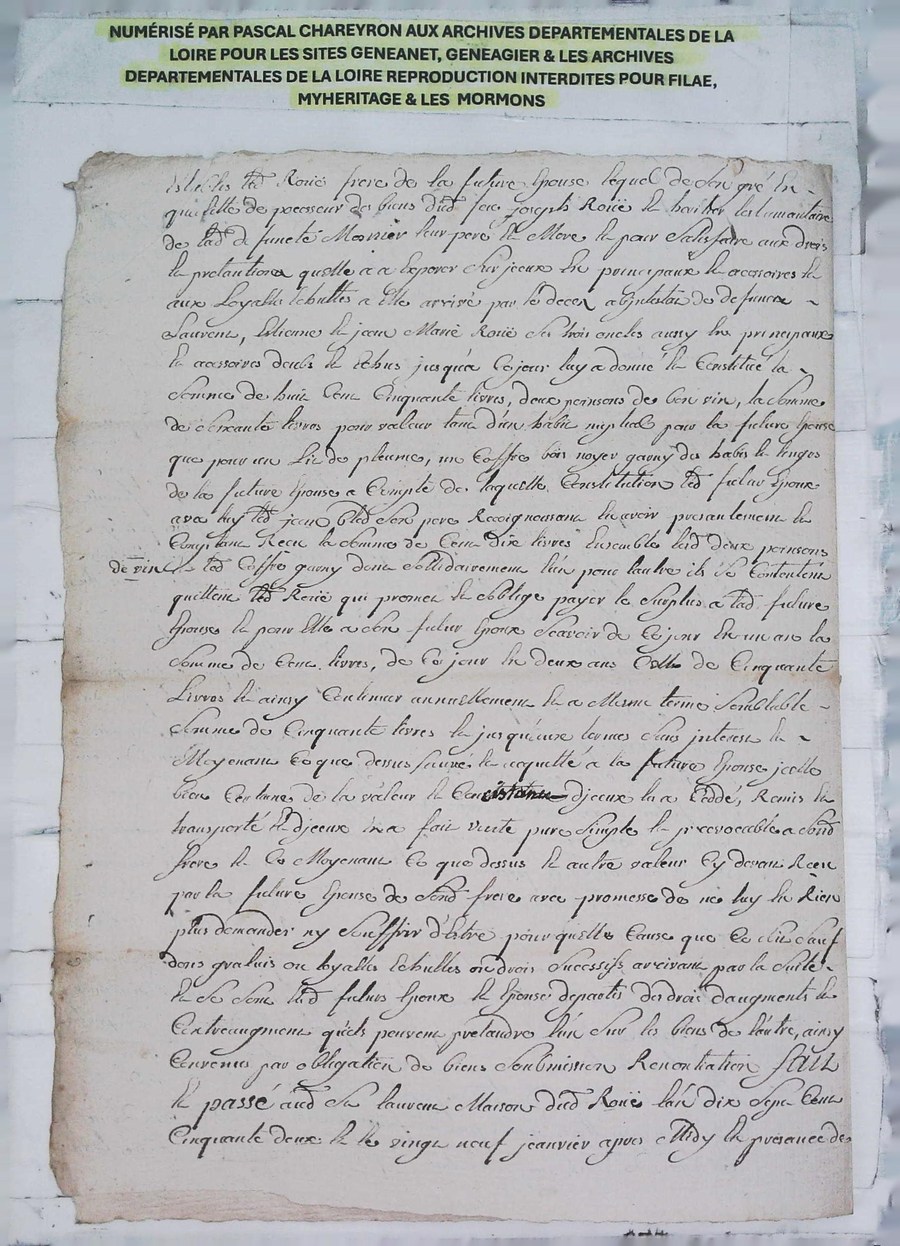 NUMÉRISÉ PAR PASCAL CHAREYRON AUX ARCHIVES DEPARTEMENTALES DE LA
LOIRE POUR LES SITES GENEANET, GENEAGIER & LES ARCHIVES
DEPARTEMENTALES DE LA LOIRE REPRODUCTION INTERDITES POUR FILAE,
MYHERITAGE & LES MORMONS
led Roüe frere de la future Epouse lequel de son gré En
quallitte de pocesseur des biens dud feu joseph Roüe Et heritier testamentaire
de lad d functe Mosnier leur pere Et Mere Et pour satisfaire aux drois
Et pretantions quelle a a Exporer sur jceux En principaux Et acosoires Et
aux Loyalles Echuttes a Elle arrivé par le deces abintestat de defuncts
Laurent, Estienne Et jean Marie Roüe ses trois oncles aussy En principaux
Et accessoires deubs Et Echus jusqua Ce jour luy a donné Et Constitué la
somme de huit Cent Cinquante livres, deux poinsons de bon vin, la somme
de livres pour valeur tant d'un habit nuptial pour la future Epouse
que pour un Lit de pleume, un Coffre bois noyer garny des habits Et linges
de la future Epouse a Compte de laquelle Constitution led futur Epoux
avec luy led jean son pere Recoignoissent En avoir presantement Et
Comptant Receu la somme de Cent Dix livres Ensemble lesd deux poinsons
de vin Et led Coffre garny dont sollidairement l'un pour l'autre ils se Contentent
quittent led Roüe qui promet Et oblige payer le surplus a lad future
Epouse Et pour Elle a son futur Epoux Scavoir de Ce jour En un an la
somme de Cent livres, de Ce jour En deux ans Celle de Cinquante
Livres Et ainsy Continuer annuellement Et a Mesme terme semblable
somme de Cinquante livres Et jusqu'aux termes sans interest Et
Moyenant Ce que dessus la future Epouse jcelle
bien Certaine de la valeur Et djceux En a Ceddé, Remis Et
transporté Et djceux En a fait vente pure simple Et jrrevocable a sond
frere Et Ce Moyenant Ce que dessus Et autre valeur Cy devant Receu
par la future Epouse de sond frere avec promesse de ne luy En Rien
plus demander ny souffrir d'Estre pour quelle Cause que Ce soit sauf
dons gratuis ou loyalles Echuttes ou drois successifs arrivant par la suite
Et se sont lesd futurs Epoux Et Epouse departis des drois daugments Et
Contreaugment qu'ils peuvent pretandre l'un sur les biens de l'autre, ainsy
Convenu par obligation de biens soubmission Renontiation fait
Et passé aud St laurent Maison dud Roüe l'an dix sept Cent
Cinquante deux Et le vingt neuf jeanvier apres Midy En presance de